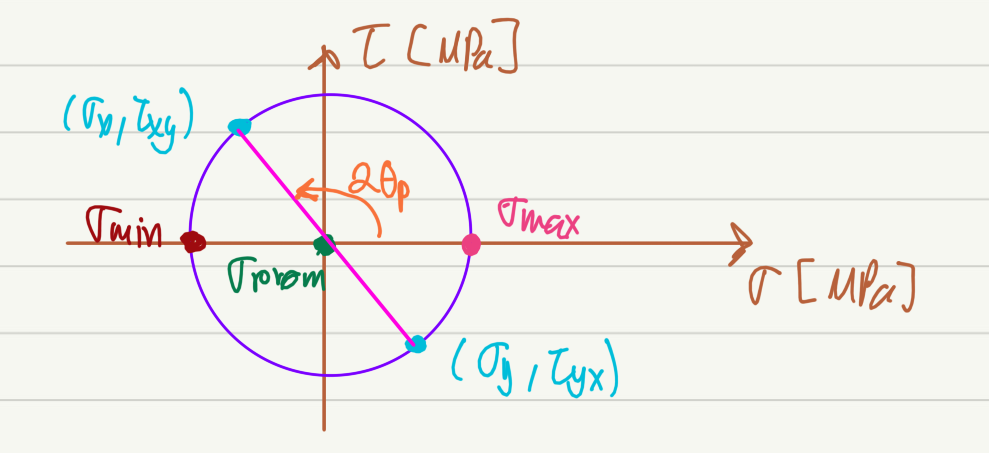 τ [MPa]
(σx, τxy)
2θp
σmin
σmax
σprom
σ [MPa]
(σy, τyx)